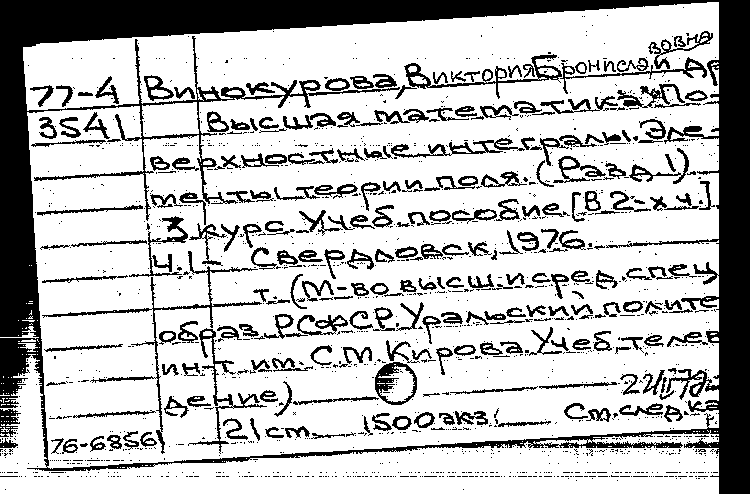 вовна
77-4 Винокурова, Виктория Бронисла, и др
3541 Высшая математика. По-
верхностные интегралы. Эле-
менты теории поля. (Разд. 1)
3 курс. Учеб. пособие. [В 2-х ч.]
Ч.1 - Свердловск, 1976.
т. (М-во высш. и сред. спец
образ. РСФСР. Уральский полите
ин-т им. С.М. Кирова. Учеб. телев
дение)
21 см. 1500 экз. См. след. ка
76-68561